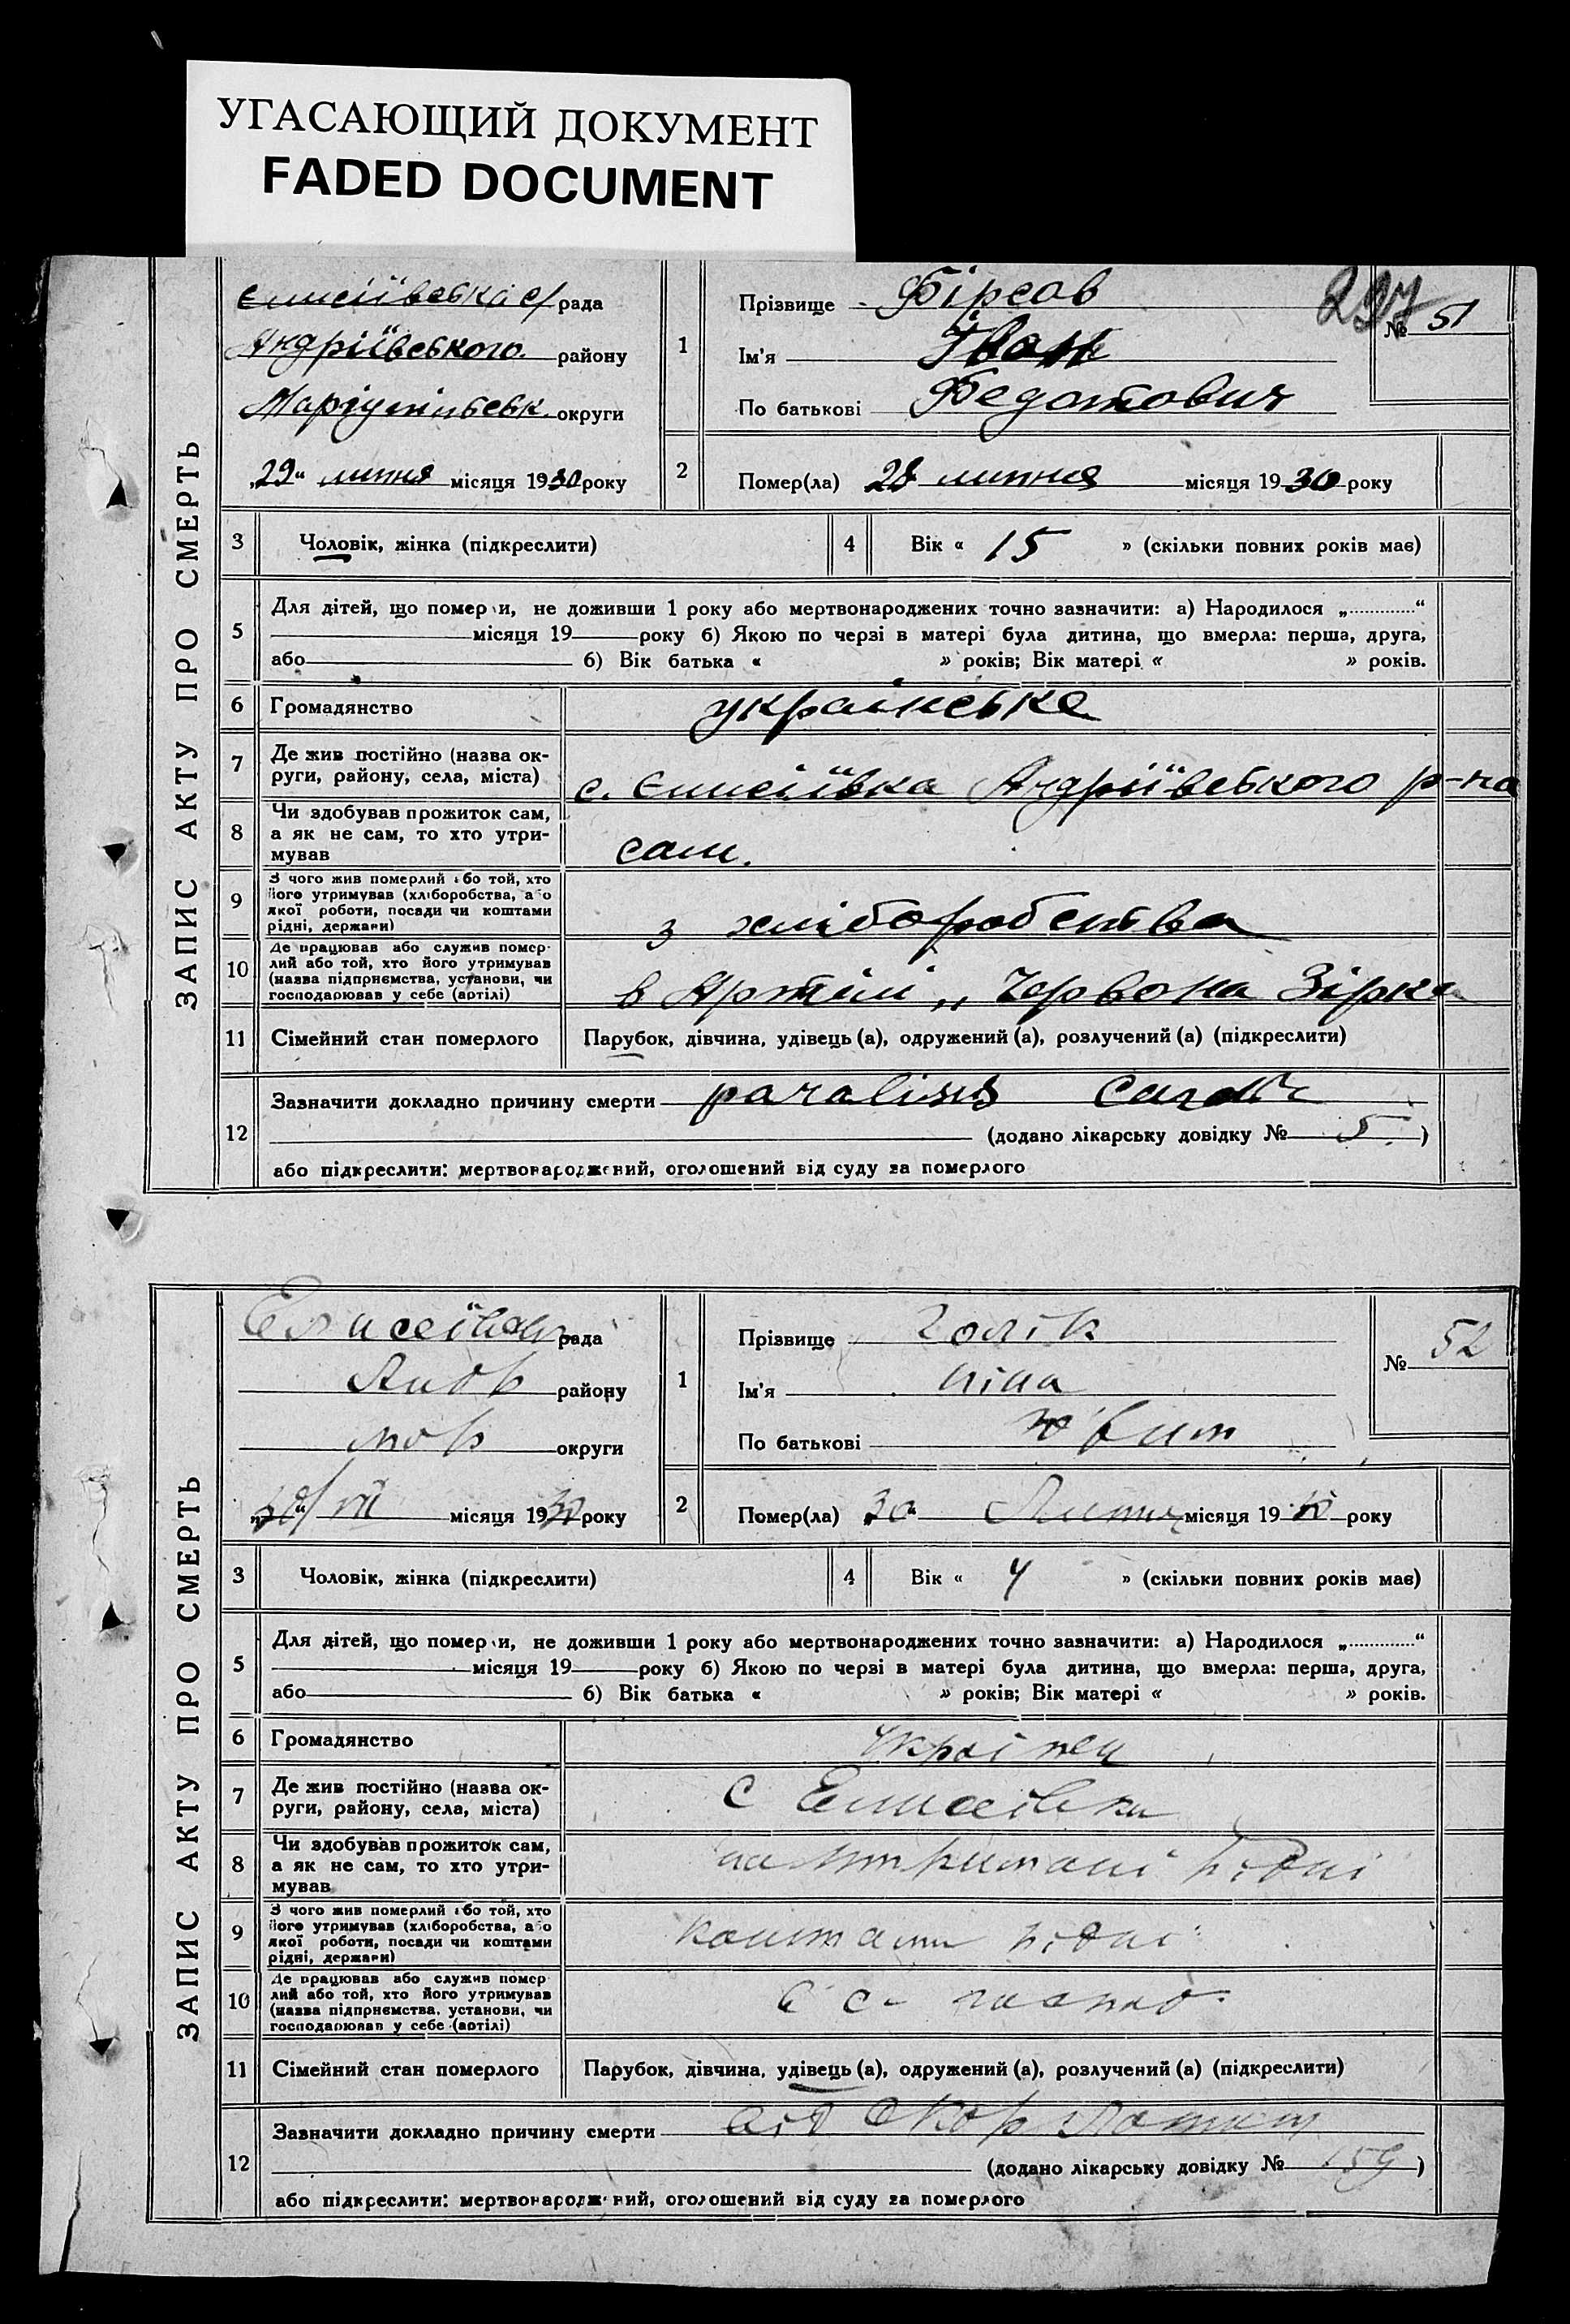 УГАСАЮЩИЙ ДОКУМЕНТ
FADED DOCUMENT
ЗАПИС АКТУ ПРО СМЕРТЬ
Єлисіївська с/рада
Андріївського району
Маріупільськ. округи
„29“ липня місяця 1930 року
1
Прізвище Фірсов
Ім'я Іван
По батькові Федотович
297
№ 51
2
Помер(ла) 28 липня місяця 1930 року
3 Чоловік, жінка (підкреслити)
4 Вік « 15 » (скільки повних років має)
5
Для дітей, що померли, не доживши 1 року або мертвонароджених точно зазначити: а) Народилося „............“
місяця 19 року б) Якою по черзі в матері була дитина, що вмерла: перша, друга,
або б) Вік батька « » років; Вік матері « » років.
6 Громадянство українське
7 Де жив постійно (назва ок-
руги, району, села, міста)
с. Єлисіївка Андріївського р-на
8 Чи здобував прожиток сам,
а як не сам, то хто утри-
мував
сам.
9 З чого жив померлий або той, хто
його утримував (хліборобства, або
якої роботи, посади чи коштами
рідні, держави)
з хліборобства
10 Де працював або служив помер-
лий або той, хто його утримував
(назва підприємства, установи, чи
господарював у себе (артілі)
в Артілі „Червона Зірка
11 Сімейний стан померлого Парубок, дівчина, удівець (а), одружений (а), розлучений (а) (підкреслити)
12
Зазначити докладно причину смерти paralisis
(додано лікарську довідку № 5.)
або підкреслити: мертвонароджений, оголошений від суду за померлого
ЗАПИС АКТУ ПРО СМЕРТЬ
рада
Андр району
округи
30/VII місяця 1930 року
1
Прізвище Голік
Ім'я Ніна
По батькові
№ 52
2
Помер(ла) „30“ Липня місяця 1930 року
3 Чоловік, жінка (підкреслити)
4 Вік « 4 » (скільки повних років має)
5
Для дітей, що померли, не доживши 1 року або мертвонароджених точно зазначити: а) Народилося „............“
місяця 19 року б) Якою по черзі в матері була дитина, що вмерла: перша, друга,
або б) Вік батька « » років; Вік матері « » років.
6 Громадянство
7 Де жив постійно (назва ок-
руги, району, села, міста)
с Елисеівка
8 Чи здобував прожиток сам,
а як не сам, то хто утри-
мував
на утримані рідні
9 З чого жив померлий або той, хто
його утримував (хліборобства, або
якої роботи, посади чи коштами
рідні, держави)
коштами рідні
10 Де працював або служив помер-
лий або той, хто його утримував
(назва підприємства, установи, чи
господарював у себе (артілі)
11 Сімейний стан померлого Парубок, дівчина, удівець (а), одружений (а), розлучений (а) (підкреслити)
12
Зазначити докладно причину смерти від
(додано лікарську довідку № 159)
або підкреслити: мертвонароджений, оголошений від суду за померлого